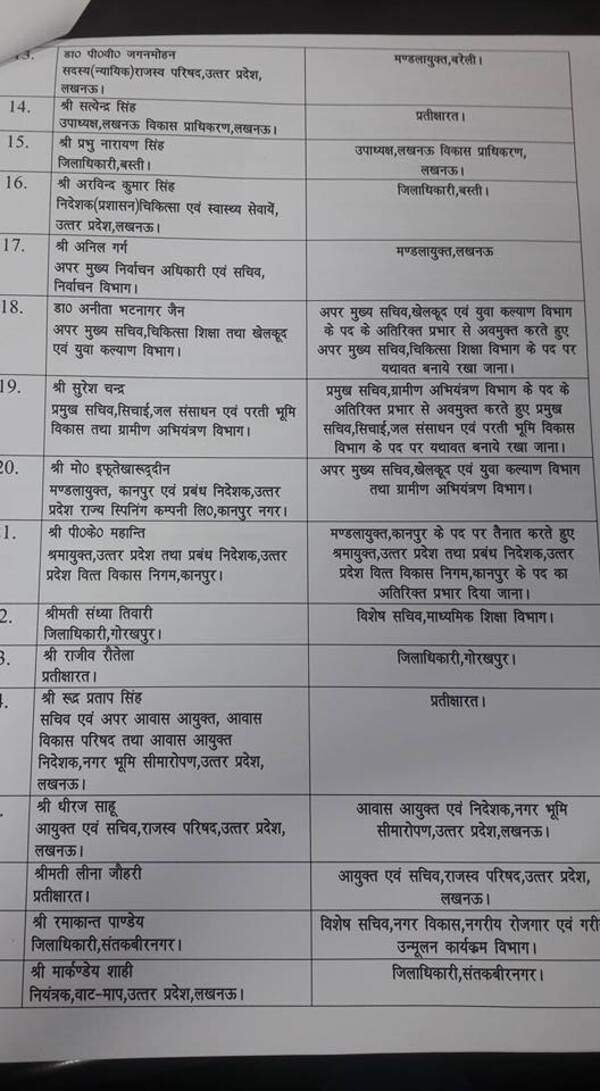 13.
डा० पी०वी० जगनमोहन
सदस्य(न्यायिक)राजस्व परिषद,उत्तर प्रदेश,
लखनऊ।
मण्डलायुक्त,बरेली।
14.
श्री सत्येन्द्र सिंह
उपाध्यक्ष,लखनऊ विकास प्राधिकरण,लखनऊ।
प्रतीक्षारत।
15.
श्री प्रभु नारायण सिंह
जिलाधिकारी,बस्ती।
उपाध्यक्ष,लखनऊ विकास प्राधिकरण,
लखनऊ।
16.
श्री अरविन्द कुमार सिंह
निदेशक(प्रशासन)चिकित्सा एवं स्वास्थ्य सेवायें,
उत्तर प्रदेश,लखनऊ।
जिलाधिकारी,बस्ती।
17.
श्री अनिल गर्ग
अपर मुख्य निर्वाचन अधिकारी एवं सचिव,
निर्वाचन विभाग।
मण्डलायुक्त,लखनऊ
18.
डा० अनीता भटनागर जैन
अपर मुख्य सचिव,चिकित्सा शिक्षा तथा खेलकूद
एवं युवा कल्याण विभाग।
अपर मुख्य सचिव,खेलकूद एवं युवा कल्याण विभाग
के पद के अतिरिक्त प्रभार से अवमुक्त करते हुए
अपर मुख्य सचिव,चिकित्सा शिक्षा विभाग के पद पर
यथावत बनाये रखा जाना।
19.
श्री सुरेश चन्द्र
प्रमुख सचिव,सिचाई,जल संसाधन एवं परती भूमि
विकास तथा ग्रामीण अभियंत्रण विभाग।
प्रमुख सचिव,ग्रामीण अभियंत्रण विभाग के पद के
अतिरिक्त प्रभार से अवमुक्त करते हुए प्रमुख
सचिव,सिचाई,जल संसाधन एवं परती भूमि विकास
विभाग के पद पर यथावत बनाये रखा जाना।
20.
श्री मो० इफ्तेखारूद्दीन
मण्डलायुक्त, कानपुर एवं प्रबंध निदेशक,उत्तर
प्रदेश राज्य स्पिनिंग कम्पनी लि०,कानपुर नगर।
अपर मुख्य सचिव,खेलकूद एवं युवा कल्याण विभाग
तथा ग्रामीण अभियंत्रण विभाग।
1.
श्री पी०के० महान्ति
श्रमायुक्त,उत्तर प्रदेश तथा प्रबंध निदेशक,उत्तर
प्रदेश वित्त विकास निगम,कानपुर।
मण्डलायुक्त,कानपुर के पद पर तैनात करते हुए
श्रमायुक्त,उत्तर प्रदेश तथा प्रबंध निदेशक,उत्तर
प्रदेश वित्त विकास निगम,कानपुर के पद का
अतिरिक्त प्रभार दिया जाना।
2.
श्रीमती संध्या तिवारी
जिलाधिकारी,गोरखपुर।
विशेष सचिव,माध्यमिक शिक्षा विभाग।
3.
श्री राजीव रौतेला
प्रतीक्षारत।
जिलाधिकारी,गोरखपुर।
4.
श्री रूद्र प्रताप सिंह
सचिव एवं अपर आवास आयुक्त, आवास
विकास परिषद तथा आवास आयुक्त
निदेशक,नगर भूमि सीमारोपण,उत्तर प्रदेश,
लखनऊ।
प्रतीक्षारत।
श्री धीरज साहू
आयुक्त एवं सचिव,राजस्व परिषद,उत्तर प्रदेश,
लखनऊ।
आवास आयुक्त एवं निदेशक,नगर भूमि
सीमारोपण,उत्तर प्रदेश,लखनऊ।
श्रीमती लीना जौहरी
प्रतीक्षारत।
आयुक्त एवं सचिव,राजस्व परिषद,उत्तर प्रदेश,
लखनऊ।
श्री रमाकान्त पाण्डेय
जिलाधिकारी,संतकबीरनगर।
विशेष सचिव,नगर विकास,नगरीय रोजगार एवं गरी
उन्मूलन कार्यक्रम विभाग।
श्री मार्कण्डेय शाही
नियंत्रक,वाट-माप,उत्तर प्रदेश,लखनऊ।
जिलाधिकारी,संतकबीरनगर।